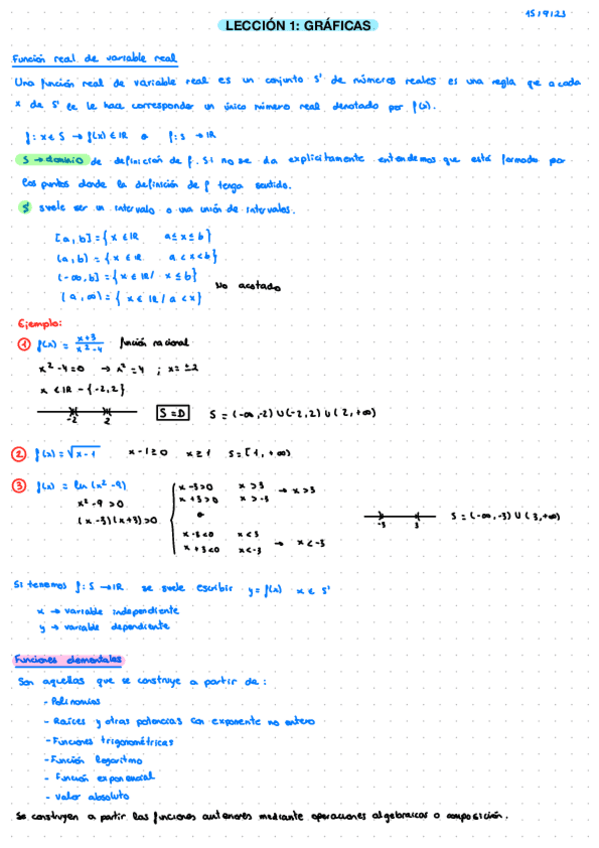 15/9/23
LECCIÓN 1: GRÁFICAS
Función real de variable real
Una función real de variable real es un conjunto S' de números reales es una regla que a cada
x de S' se le hace corresponder un único número real denotado por f(x).
f: x ∈ S → f(x) ∈ IR o f: S → IR
S → dominio de definición de f. Si no se da explícitamente entendemos que está formado por
los puntos donde la definición de f tenga sentido.
S' suele ser un intervalo o una unión de intervalos.
[a, b] = {x ∈ IR a ≤ x ≤ b}
(a, b) = {x ∈ IR a < x < b}
(-∞, b] = {x ∈ IR / x ≤ b}
No acotado
(a, ∞) = {x ∈ IR / a < x}
Ejemplo:
① f(x) = x+3 / x²-4 función racional
x²-4=0 → x²=4 ; x=±2
x ∈ IR - {-2,2}
-2 2 S=D S = (-∞,-2) U (-2,2) U (2,+∞)
② f(x) = √x-1 x-1≥0 x≥1 S=[1,+∞)
③ f(x) = ln(x²-9)
x-3>0 x>3 → x>3
x+3>0 x>-3
x²-9>0
(x-3)(x+3)>0
o
-3 3 S = (-∞,-3) U (3,+∞)
x-3<0 x<3
x+3<0 x<-3 → x<-3
Si tenemos f: S → IR se suele escribir y = f(x) x ∈ S'
x → variable independiente
y → variable dependiente
Funciones elementales
Son aquellas que se construye a partir de:
- Polinomios
- Raíces y otras potencias con exponente no entero
- Funciones trigonométricas
- Función logaritmo
- Función exponencial
- Valor absoluto
Se construyen a partir las funciones anteriores mediante operaciones algebraicas o composición.